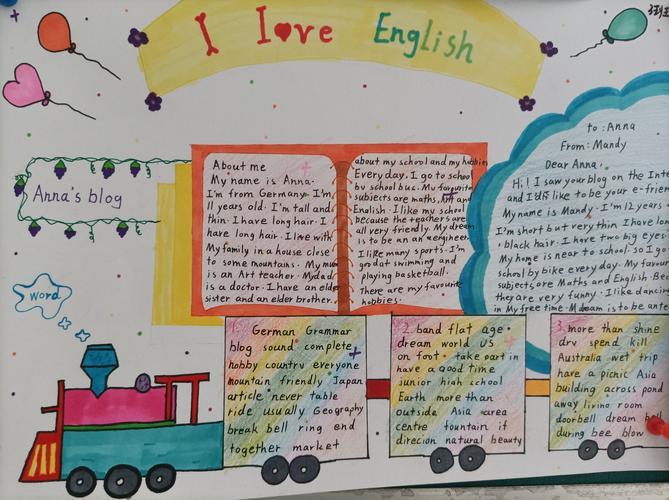 I Love English
Anna's blog
word
About me
My name is Anna.
I'm from Germany. I'm
11 years old. I'm tall and
thin. I have long hair. I
have long hair. I live with
My family in a house close
to some mountains. My mum
is an Art teacher. My dad
is a doctor. I have an elder
sister and an elder brother.
about my school and my hobbies
Every day. I go to school
by school bus. My favourite
subjects are maths, Art and
English. I like my school
because the teachers are
all very friendly. My dream
is to be an an engineer
I like many sports. I'm
good at swimming and
playing basketball.
there are my favourite
hobbies.
to : Anna
From: Mandy
Dear Anna.
Hi! I saw your blog on the Inte
and I'd like to be your e-frien
My name is Mandy. I'm 12 years
I'm short but very thin I have lon
black hair. I have two big eyes.
My home is near to school so I go
school by bike every day. My favour
subjects are Maths and English. Bec
they are very funny. I like dancing
in My free time. M dream is to be
1. German Grammar
blog sound complete
hobby country everyone
mountain friendly Japan
article never table
ride usually Geography
break bell ring end
together market
2. band flat age
dream world US
on foot. take part in
have a good time
junior high school
Earth more than
outside Asia area
centre fountain if
direcion natural beauty
3. more than shine
dry spend kill
Australia wet trip
have a picnic Asia
building across pond
away living room
doorbell dream bell
during bee blow